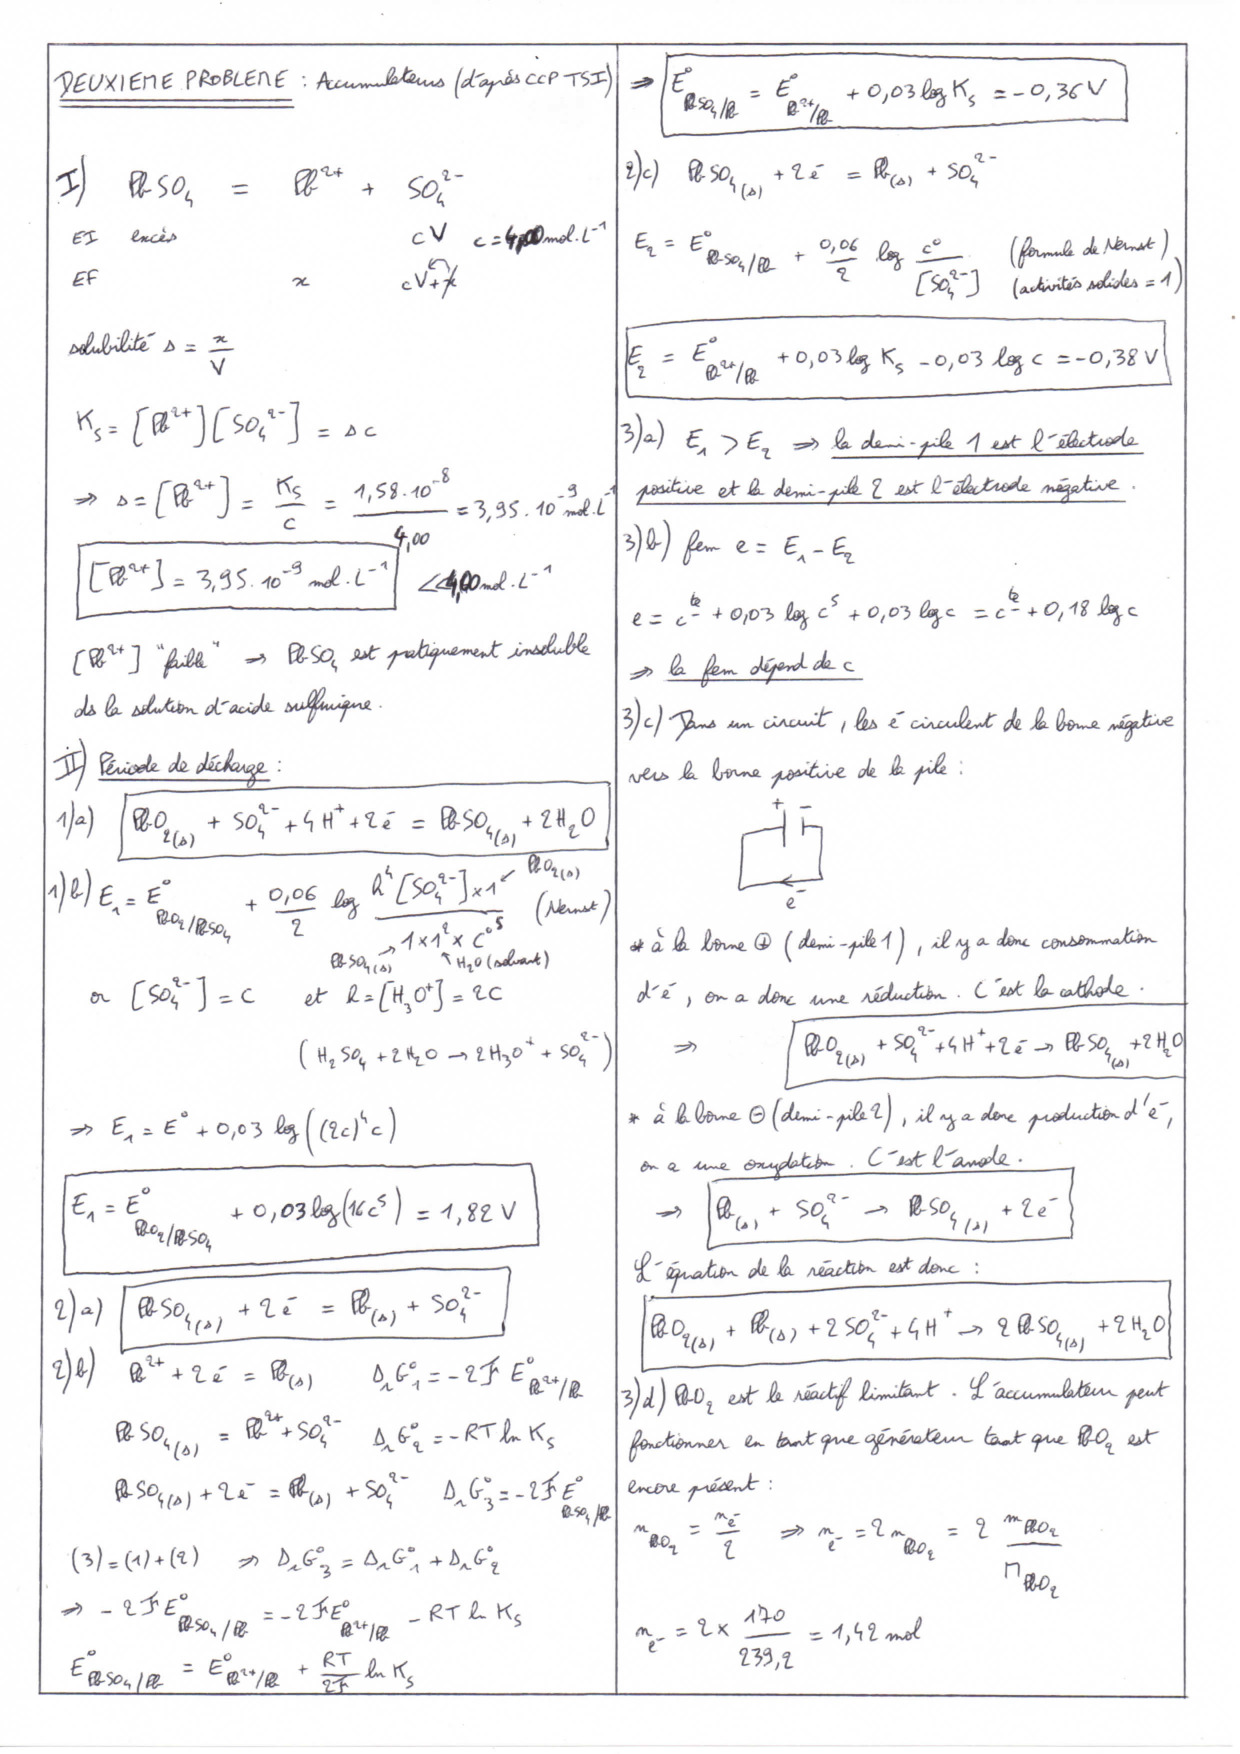 DEUXIEME PROBLEME : Accumulateurs (d'après CCP TSI)
I) PbSO₄ = Pb²⁺ + SO₄²⁻
EI excès cV c = 4,00 mol.L⁻¹
EF x cV + x
solubilité s = x/V
Kₛ = [Pb²⁺][SO₄²⁻] = s c
⇒ s = [Pb²⁺] = Kₛ/c = 1,58.10⁻⁸/4,00 = 3,95.10⁻⁹ mol.L⁻¹
[Pb²⁺] = 3,95.10⁻⁹ mol.L⁻¹ << 4,00 mol.L⁻¹
[Pb²⁺] "faible" ⇒ PbSO₄ est pratiquement insoluble
ds la solution d'acide sulfurique.
II) Période de décharge :
1)a) PbO₂(s) + SO₄²⁻ + 4H⁺ + 2é = PbSO₄(s) + 2H₂O
1)b) E₁ = E°PbO₂/PbSO₄ + 0,06/2 log h⁴[SO₄²⁻]×1/1×1²×c°⁵ (Nernst)
PbO₂(s)
PbSO₄(s) H₂O (solvant)
or [SO₄²⁻] = c et h = [H₃O⁺] = 2c
(H₂SO₄ + 2H₂O → 2H₃O⁺ + SO₄²⁻)
⇒ E₁ = E° + 0,03 log((2c)⁴c)
E₁ = E°PbO₂/PbSO₄ + 0,03 log(16c⁵) = 1,82 V
2)a) PbSO₄(s) + 2é = Pb(s) + SO₄²⁻
2)b) Pb²⁺ + 2é = Pb(s) ΔᵣG°₁ = -2F E°Pb²⁺/Pb
PbSO₄(s) = Pb²⁺ + SO₄²⁻ ΔᵣG°₂ = -RT ln Kₛ
PbSO₄(s) + 2é = Pb(s) + SO₄²⁻ ΔᵣG°₃ = -2F E°PbSO₄/Pb
(3) = (1) + (2) ⇒ ΔᵣG°₃ = ΔᵣG°₁ + ΔᵣG°₂
⇒ -2F E°PbSO₄/Pb = -2F E°Pb²⁺/Pb - RT ln Kₛ
E°PbSO₄/Pb = E°Pb²⁺/Pb + RT/2F ln Kₛ
⇒ E°PbSO₄/Pb = E°Pb²⁺/Pb + 0,03 log Kₛ = -0,36 V
2)c) PbSO₄(s) + 2é = Pb(s) + SO₄²⁻
E₂ = E°PbSO₄/Pb + 0,06/2 log c°/[SO₄²⁻] (formule de Nernst)
(activités solides = 1)
E₂ = E°Pb²⁺/Pb + 0,03 log Kₛ - 0,03 log c = -0,38 V
3)a) E₁ > E₂ ⇒ la demi-pile 1 est l'électrode
positive et la demi-pile 2 est l'électrode négative.
3)b) fem e = E₁ - E₂
e = cᵗᵉ + 0,03 log c⁵ + 0,03 log c = cᵗᵉ + 0,18 log c
⇒ la fem dépend de c
3)c) Dans un circuit, les é circulent de la borne négative
vers la borne positive de la pile :
+ -
e⁻
* à la borne ⊕ (demi-pile 1), il y a donc consommation
d'é, on a donc une réduction. C'est la cathode.
⇒ PbO₂(s) + SO₄²⁻ + 4H⁺ + 2é → PbSO₄(s) + 2H₂O
* à la borne ⊖ (demi-pile 2), il y a donc production d'é,
on a une oxydation. C'est l'anode.
⇒ Pb(s) + SO₄²⁻ → PbSO₄(s) + 2e⁻
L'équation de la réaction est donc :
PbO₂(s) + Pb(s) + 2SO₄²⁻ + 4H⁺ → 2PbSO₄(s) + 2H₂O
3)d) PbO₂ est le réactif limitant. L'accumulateur peut
fonctionner en tant que générateur tant que PbO₂ est
encore présent :
nPbO₂ = né/2 ⇒ né = 2nPbO₂ = 2 mPbO₂/MPbO₂
ne⁻ = 2 × 170/239,2 = 1,42 mol